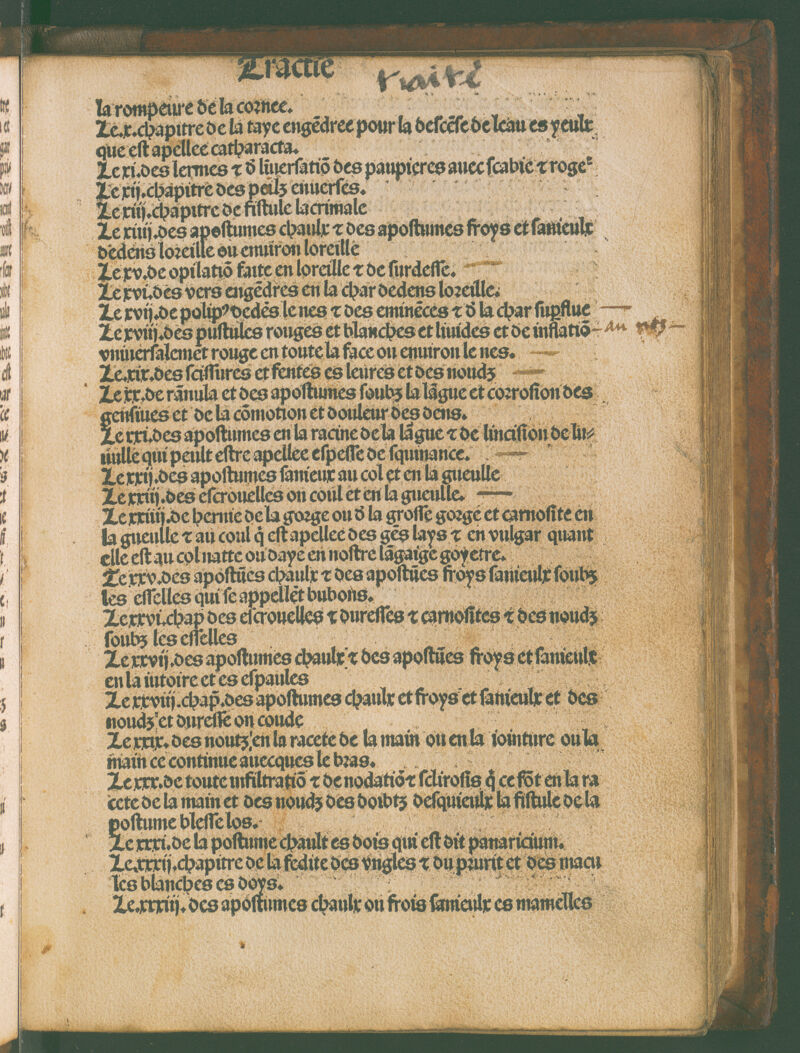 Tractie traité
la rompeure de la cornee.
Le.x.chapitre de la taye engẽdree pour la descẽse de leau es yeulx
que est apellee catharacta.
Le xi.des lermes ⁊ d̃ lĩuersatiõ des paupieres auec scabie ⁊ roge⁹
Le xij.chapitre des peilz enuerses.
Le xiij.chapitre de fistule lacrimale
Le xiiij.des apostumes chaulx ⁊ des apostumes froys et sanieulx
dedens loreille ou enuiron loreille
Le xv.de opilatiõ faite en loreille ⁊ de surdesse.
Le xvi.des vers engẽdres en la char dedens loreille.
Le xvij.de polip⁹ dedẽs le nes ⁊ des eminẽces ⁊ d̃ la char supflue
Le xviij.des pustules rouges et blanches et liuides et de inflatiõ Au nés
vniuersalemẽt rouge en toute la face ou enuiron le nes.
Le.xix.des scissures et fentes es leures et des noudz
Le xx.de rãnula et des apostumes soubz la lãgue et corrosion des
gensiues et de la cõmotion et douleur des dens.
Le xxi.des apostumes en la racine de la lãgue ⁊ de lincision de lu⸗
uulle qui peult estre apellee espesse de squinance.
Le xxij.des apostumes sanieux au col et en la gueulle
Le xxiij.des escrouelles on coul et en la gueulle.
Le xxiiij.de hernie de la gorge ou d̃ la grosse gorge et carnosite en
la gueulle ⁊ au coul q̃ est apellee des gẽs lays ⁊ en vulgar quant
elle est au col natte ou daye en nostre lãgaige goyetre.
Le xxv.des apostũes chaulx ⁊ des apostũes froys sanieulx soubz
les esselles qui se appellẽt bubons.
Le xxvi.chap des escrouelles ⁊ duresses ⁊ carnosites ⁊ des noudz
soubz les esselles
Le xxvij.des apostumes chaulx ⁊ des apostũes froys et sanieulx
en la iutoire et es espaules
Le xxviij.chap̃.des apostumes chaulx et froys et sanieulx et des
noudz et duresse on coude
Le xxix.des noutz en la racete de la main ou en la iointure ou la
main ce continue auecques le bras.
Le xxx.de toute infiltratiõ ⁊ de nodatiõ ⁊ sclirosis q̃ ce fõt en la ra
cete de la main et des noudz des doibtz desquieulx la fistule de la
postume blesse los.
Le xxxi.de la postume chault es dois qui est dit panaricium.
Le.xxxij.chapitre de la fedite des vngles ⁊ du prurit et des macu
les blanches es doys.
Le.xxxiij.des apostumes chaulx ou frois sanieulx es mamelles